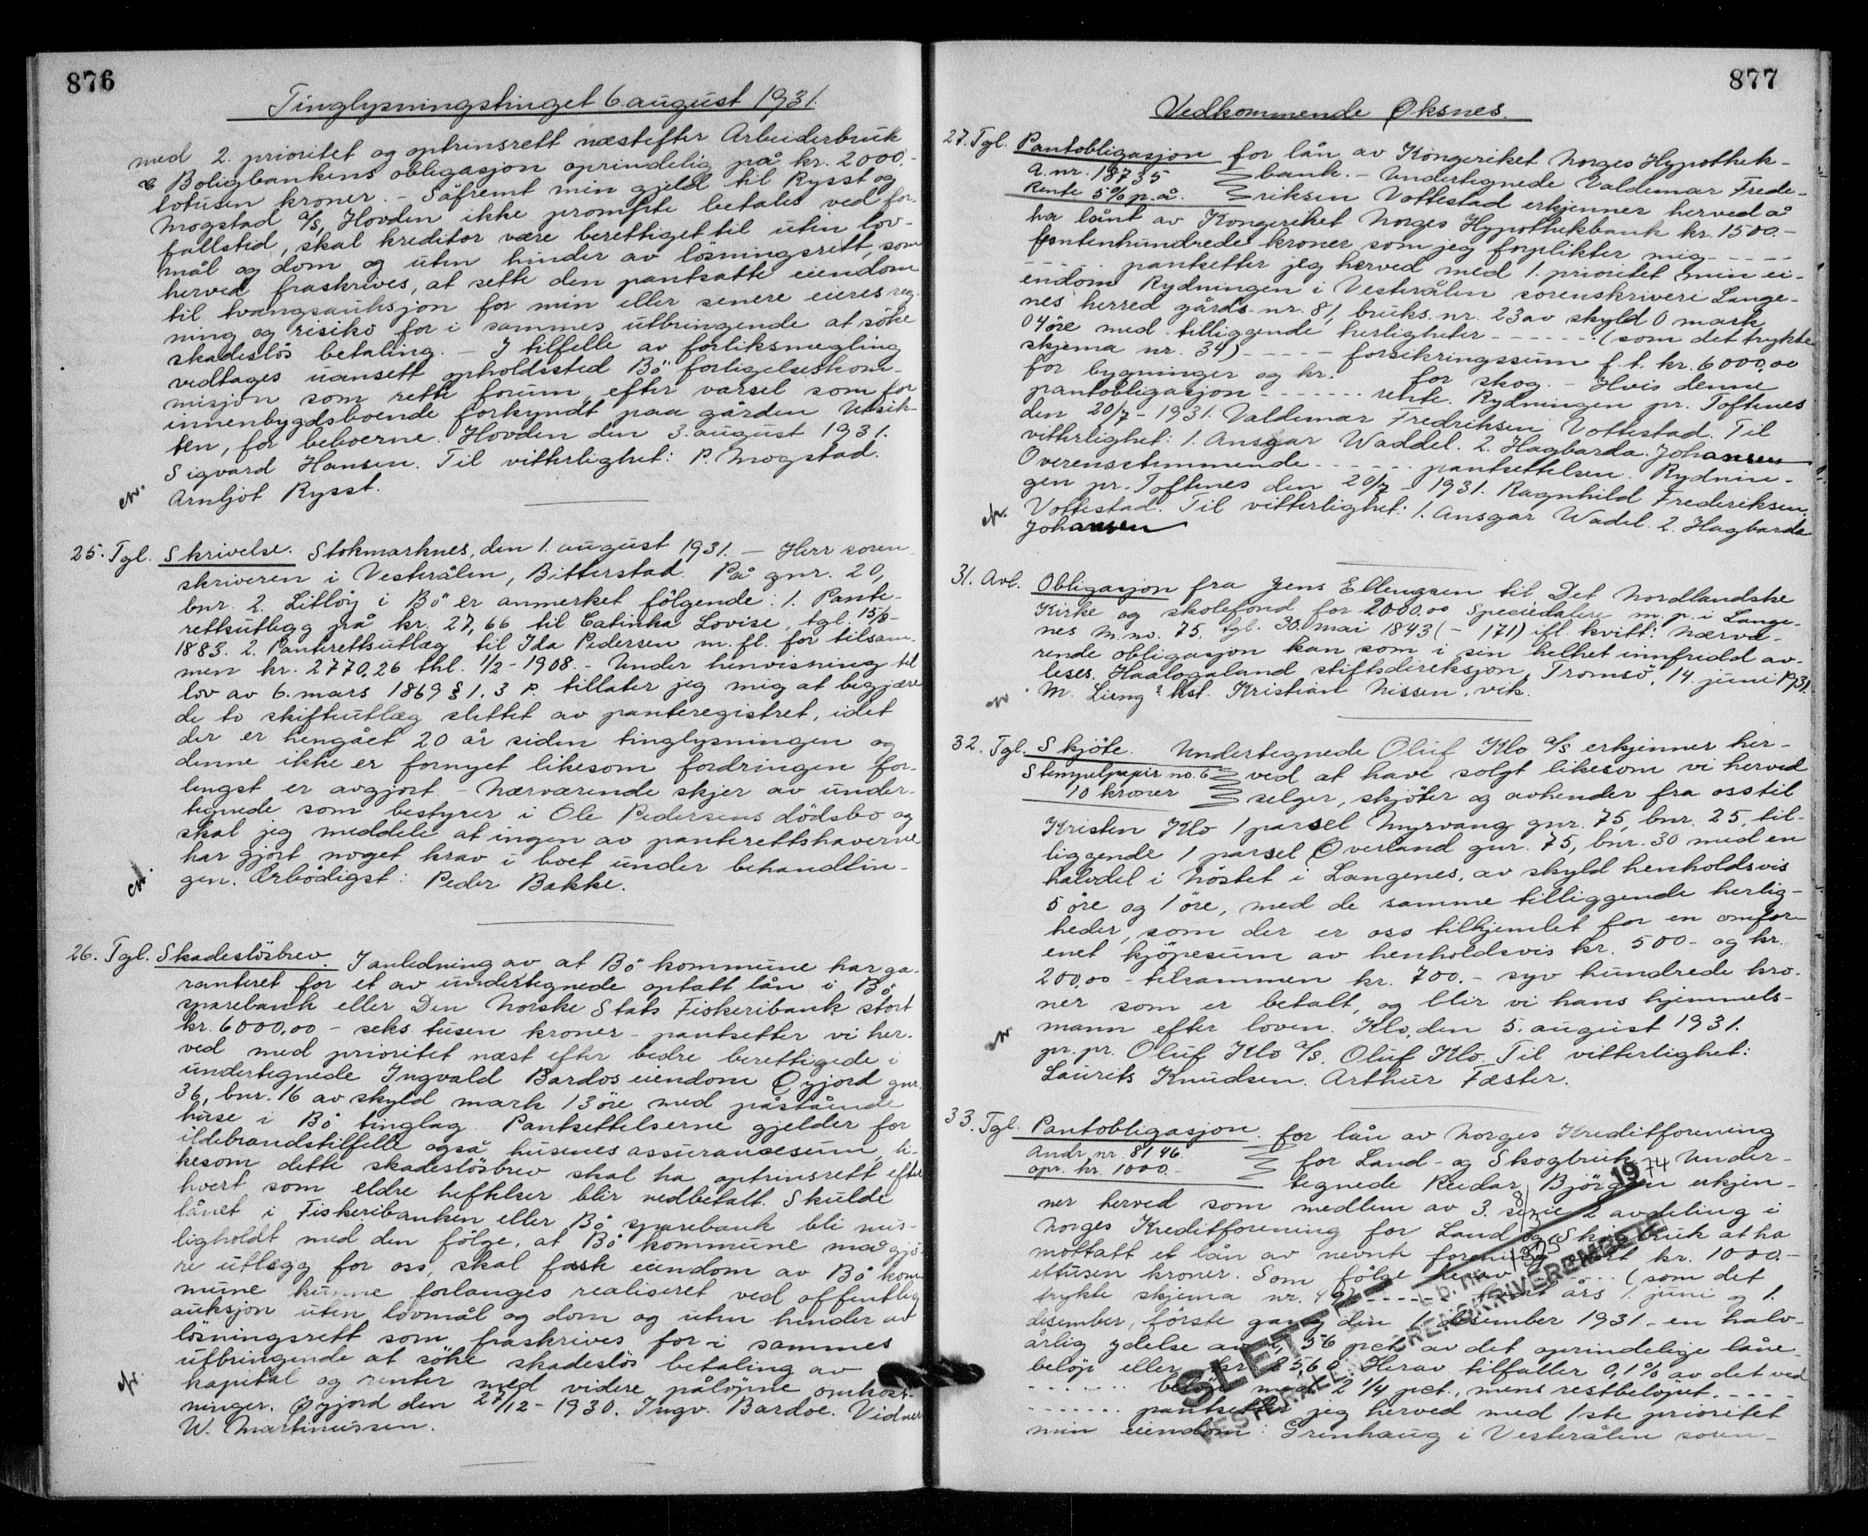 876
Tinglysningstinget 6. august 1931.
med 2. prioritet og optrinsrett næstefter Arbeiderbruk
& Boligbankens obligasjon oprindelig på kr. 2000,-
totusen kroner. - Såfremt min gjeld til Rysst og
Mogstad a/s, Hovden ikke promte betales ved for-
fallstid, skal kreditor være berettiget til uten lov-
mål og dom og uten hinder av løsningsrett, som
herved fraskrives, at sette den pantsatte eiendom
til tvangsauksjon for min eller senere eieres reg-
ning og risiko for i sammes utbringende at søke
skadesløs betaling. - I tilfelle av forliksmegling
vedtages uansett opholdssted Bø forligelseskom-
misjon som rett forum, efter varsel som for
innenbygdsboende forkyndt paa gården Utsik-
ten, for beboerne. Hovden den 3. august 1931.
Sigvard Hansen. Til vitterlighet: P. Mogstad.
Arnljot Rysst.
25. Tgl. Skrivelse. Stokmarknes, den 1. august 1931. - Herr soren-
skriveren i Vesterålen, Bitterstad. På gnr. 20,
bnr. 2. Litløy i Bø er anmerket følgende: 1. Pante-
rettsutlegg på kr. 27,66 til Catinka Lovise, tgl. 15/5-
1883. 2. Panterettsutlæg til Ida Pedersen m.fl. for tilsam-
men kr. 2770,26 thl. 1/2-1908. - Under henvisning til
lov av 6. mars 1869 § 1, 3 P. tillater jeg mig at begjære
de to skifteutlæg slettet av panteregistret, idet
der er hengået 20 år siden tinglysningen og
denne ikke er fornyet likesom fordringen for-
lengst er avgjort. - Nærværende skjer av under-
tegnede som bestyrer i Ole Pedersens dødsbo og
skal jeg meddele at ingen av panterettshaverne
har gjort noget krav i boet under behandlin-
gen. Ærbødigst: Peder Bakke.
26. Tgl. Skadesløsbrev. I anledning av at Bø kommune har ga-
ranteret for et av undertegnede optatt lån i Bø
sparebank eller Den Norske Stats Fiskeribank stort
kr. 6000,00 - seks tusen kroner - pantsetter vi her-
ved med prioritet næst efter bedre berettigede i
undertegnede Ingvald Bardos eiendom Øyjord gnr.
36, bnr. 16 av skyld mark 13 øre med påstående
huse i Bø tinglag. Pantsettelserne gjelder for
ildebrandstilfelle også husenes assurancesum, li-
kesom dette skadesløsbrev skal ha optrinsrett efter
hvert som eldre heftelser blir nedbetalt. Skulde
lånet i Fiskeribanken eller Bø sparebank bli mis-
ligholdt med den følge, at Bø kommune må gjø-
re utlegg for oss, skal fast eiendom av Bø kom-
mune kunne forlanges realiseret ved offentlig
auksjon uten lovmål og dom og uten hinder av
løsningsrett som fraskrives for i sammes
utbringende at søke skadesløs betaling av
kapital og renter med videre påløpne omkost-
ninger. Øyjord den 27/12-1930. Ingv. Bardoe. Vidner
W. Martinussen.
877
Vedkommende Øksnes.
27. Tgl. Pantobligasjon for lån av Kongeriket Norges Hypothek-
A.nr. 18735 bank. - Undertegnede Valdemar Frede-
Rente 5% p.å. riksen Vottestad erkjenner herved å
ha lånt av Kongeriket Norges Hypothekbank kr. 1500.-
femtenhundrede kroner som jeg forplikter mig - - - - -
- - - - pantsetter jeg herved med 1. prioritet min ei-
endom Rydningen i Vesterålen sorenskriveri Lange-
nes herred gårds-nr. 81, bruks.nr. 23 av skyld 0 mark
04 øre med tilliggende herligheter - - - - - - (som det trykte
skjema nr. 34) - - - - - forsikringssum f.t. kr. 6000,00
for bygninger og kr. for skog. - Hvis denne
pantobligasjon - - - - - - - rente. Rydningen pr. Toftenes
den 20/7-1931. Valdemar Fredriksen Vottestad. Til
vitterlighet: 1. Ansgar Waddel. 2. Hagbarda Johansen
Overensstemmende - - - - - - pantsettelsen. Rydnin-
gen pr. Toftenes den 20/7-1931. Ragnhild Frederiksen
Vottestad. Til vitterlighet: 1. Ansgar Wadel. 2. Hagbarda
Johansen
31. Avl. Obligasjon fra Jens Ellengsen til Det Nordlandske
Kirke og skolefond for 2000.00 Speciedaler m.p. i Lange-
nes M.no. 75, tgl. 30. mai 1843 (- 171) ifl. kvitt: Nærvæ-
rende obligasjon kan som i sin helhet innfridd av-
leses. Haalogaland stiftsdireksjon, Tromsø, 14. juni 1931.
M. Lieng? kst. Kristian Nissen, vik.
32. Tgl. Skjøte. Undertegnede Oluf Klo a/s erkjenner her-
Stempelpapir no. 6 ved at have solgt likesom vi herved
10 kroner selger, skjøter og avhender fra oss til
Kristen Klo 1 parsel Myrvang gnr. 75, bnr. 25, til-
liggende 1 parsel Overland gnr. 75, bnr. 30 med en
halvdel i Nøstet i Langenes, av skyld henholdsvis
5 øre og 1 øre, med de samme tilliggende herlig-
heder, som der er oss tilhjemlet for en omfor-
enet kjøpesum av henholdsvis kr. 500- og kr.
200,00 - tilsammen kr. 700.- syv hundrede kro-
ner som er betalt, og blir vi hans hjemmels-
mann efter loven. Klo, den 5. august 1931.
pr. pr. Oluf Klo a/s. Oluf Klo. Til vitterlighet:
Laurits Knudsen. Arthur Fæster.
33. Tgl. Pantobligasjon for lån av Norges Kreditforening
Andr. nr. 8146 for Land- og Skogbruk. Under-
opr. kr. 1000.- tegnede Reidar Bjørgan erkjen-
ner herved som medlem av 3. serie 2 avdeling i
Norges Kreditforening for Land og Skogbruk at ha
mottatt et lån av nevnte forening stort kr. 1000.-
ettusen kroner. Som følge herav - - - - (som det
trykte skjema nr. 49) - - - - - hvert års 1. juni og 1.
desember, første gang den desember 1931 - en halv-
årlig ydelse av 2,56 pct av det oprindelige låne-
beløp eller kr. 25,60. Herav tilfaller 0,1% av det ved
- - - - - - beløp med 2 1/4 pct., mens restbeløpet - - - - -
- - - - - - pantsetter jeg herved med 1ste prioritet
min eiendom: Grenhaug i Vesterålen soren-
SLETTET 8/1 1974
VESTERÅLEN SORENSKRIVEREMBEDE